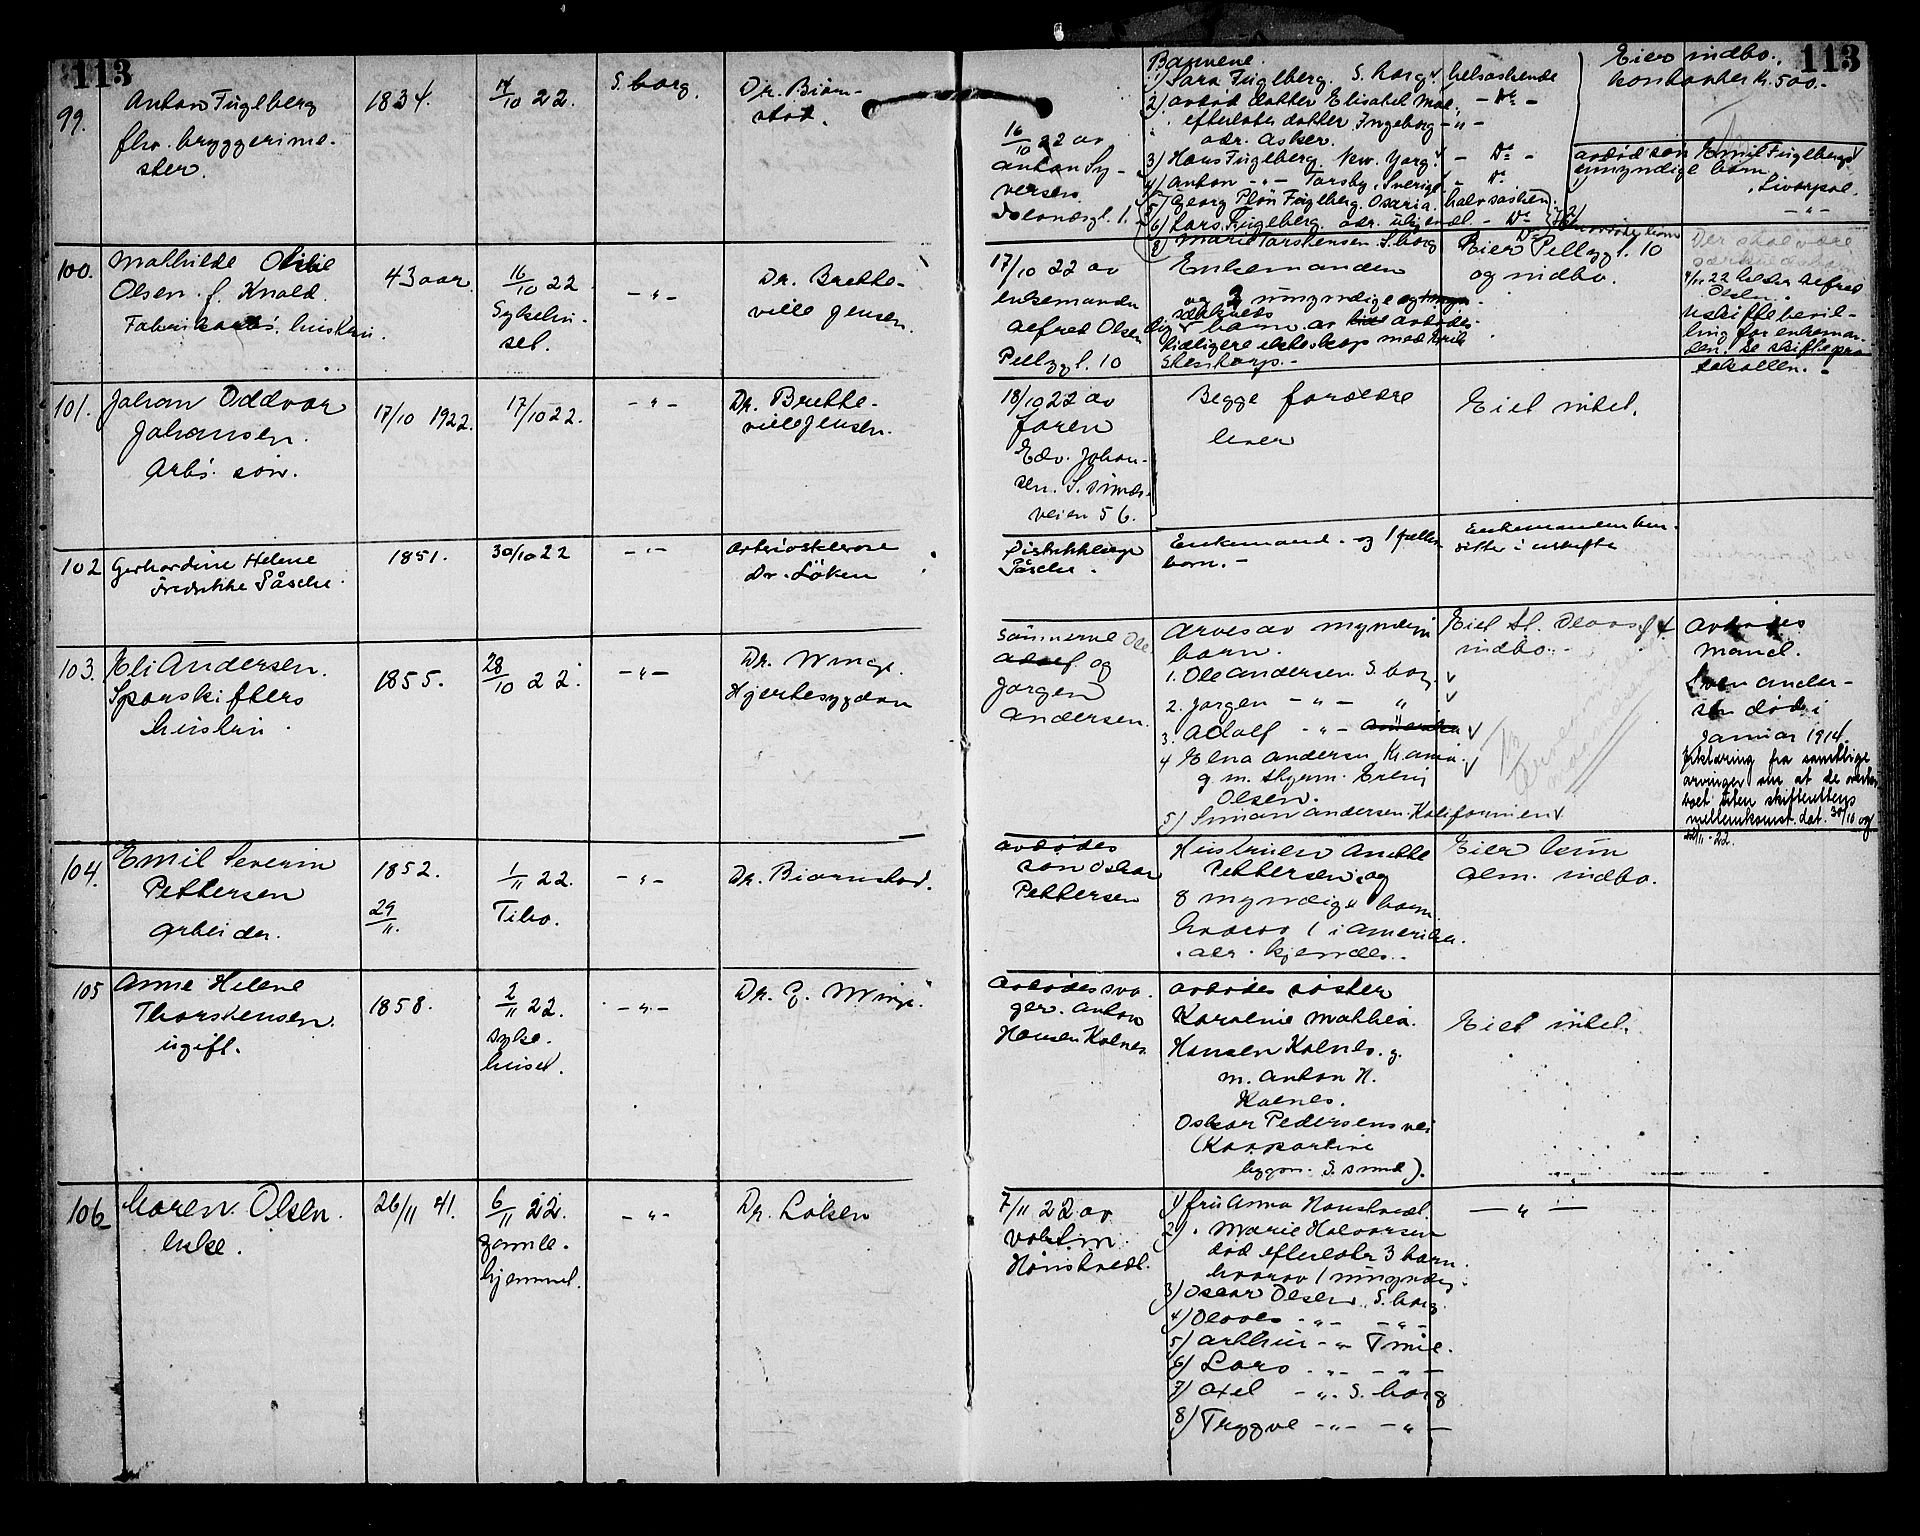 113
99.
Anton Fuglberg
fhv. bryggerime-
ster.
1834.
14/10 22.
S.borg.
Dr. Bjørn-
stad.
16/10 22 av
Anton Sy-
versen
Barnene.
1) Sara Fuglberg. S.borg. helsøskende
2) avdød datter Elisabet Moe. - Do -
efterlater datter Ingeborg - " -
adr. Asker.
3) Hans Fuglberg. New York. - Do -
4) Anton - " - Torsby, Sverige - Do
5) Georg Fuglberg. halvsøsken.
6) Lars Fuglberg. adr. ukjendt - Do
8) Marie Torstensen S.borg Do
Eier indbo.
kontanter kr. 500.-
113
avdød søn Emil Fuglbergs
umyndige barn
Liverpool.
- " -
100.
Mathilde Otilie
Olsen f. Knold.
Fabrikarb's hustru.
43 aar
16/10 22
Sykehu-
set.
- " -
Dr. Brette-
ville Jensen.
17/10 22 av
enkemanden
Alfred Olsen
Pellygt. 10
Enkemanden
og 3 umyndige
særkuldsbarn av avdødes
tidligere ekteskap med
Eier Pellygt. 10
og indbo.
Der skal være
4/11 22 Alfred
Olsen.
Uskiftebevil-
ling for enkeman-
den. Se skiftepro-
tokollen. -
101.
Johan Oddvar
Johansen.
Arb's. søn.
17/10 1922.
17/10 22.
- " -
Dr. Brette-
ville Jensen.
18/10 22 av
faren
Edv. Johan-
sen. S.sunds-
veien 56.
Begge forældre
lever
Eiet intet.
102
Gerhardine Helene
Fredrikke Påsche.
1851.
30/10 22
- " -
Arteriosklerose
Dr. Løken
Påsche.
Enkemand. og 1 fælles
barn. -
Enkemanden hen-
sitter i uskifte
103.
Eli Andersen.
Sporskifters
hustru
1855.
28/10 22.
- " -
Dr. Winge.
Hjertesygdom
Sønnerne Ole
Adolf og
Jørgen
Andersen.
Arves av myndige
barn.
1. Ole Andersen. S.borg.
2. Jørgen - " - "
3. Adolf - " -
4 Elna Andersen Kr.ania.
g. m. Erling
Olsen.
5) Simon Andersen Kalifornien
indbo. -
Avdødes
mand.
Sven Ander-
sen død i
Januar 1914.
Erklæring fra samtlige
arvinger om at de overtar
boet uten skifterettens
mellemkomst. dat. 30/10 og
22.
104.
Emil Severin
Pettersen
arbeider.
1852.
29/11.
1/11 22.
Tibo.
- " -
Dr. Bjørnstad.
avdødes
søn Oskar
Pettersen
Hustruen Anette
Pettersen og
8 myndige barn
hvorav 1 i Amerika.
adr. kjendes.
Eier kun
alm. indbo.
105
Anne Helene
Thorstensen.
ugift.
1858.
2/11 22.
syke-
huset.
- " -
Dr. G. Winge.
Avdødes svo-
ger. Anton
Hansen Kalnes.
Avdødes søster
Karoline Mathea
Hansen Kalnes. g.
m. Anton H.
Kalnes.
Oskar Pedersens vei
(Kooperative
byggn. S.sund).
Eiet intet.
106
Maren Olsen.
enke.
26/11 41.
6/11 22.
gamle-
hjemmet.
- " -
Dr. Løken
7/11 22 av
Hønstvedt.
1) fru Anna Hønstvedt.
2) " Marie Halvorsen
død efterlater 3 barn
hvorav 1 umyndig.
3) Oscar Olsen. S.borg.
4) Olaves - " - - " -
5) Arthur - " Tune.
6) Lars - " - - " -
7) Axel - " - S.borg
8) Trygve - " - - " -
- " -